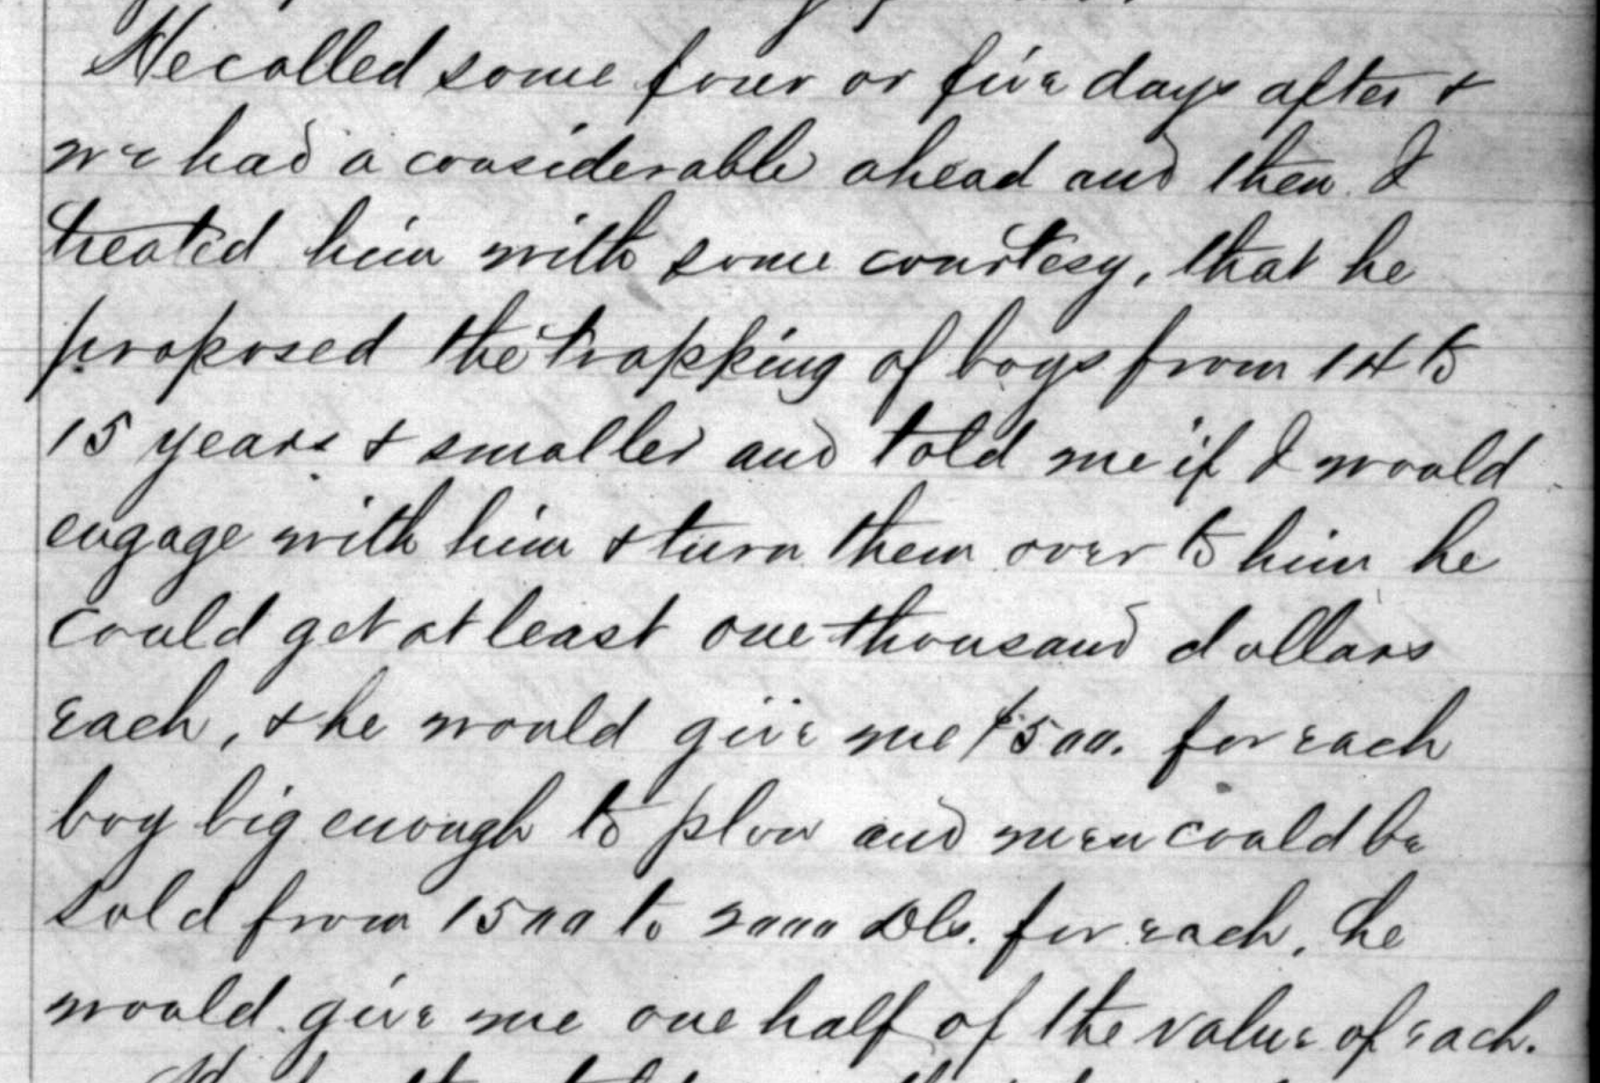 He called some four or five days after &
we had a considerable ahead and then I
treated him with some courtesy, that he
proposed the trapping of boys from 14 to
15 years & smaller and told me if I would
engage with him & turn them over to him he
could get at least one thousand dollars
each, & he would give me $500. for each
boy big enough to plow and men could be
sold from 1500 to 2000 Dls. for each, he
would give me one half of the value of each.